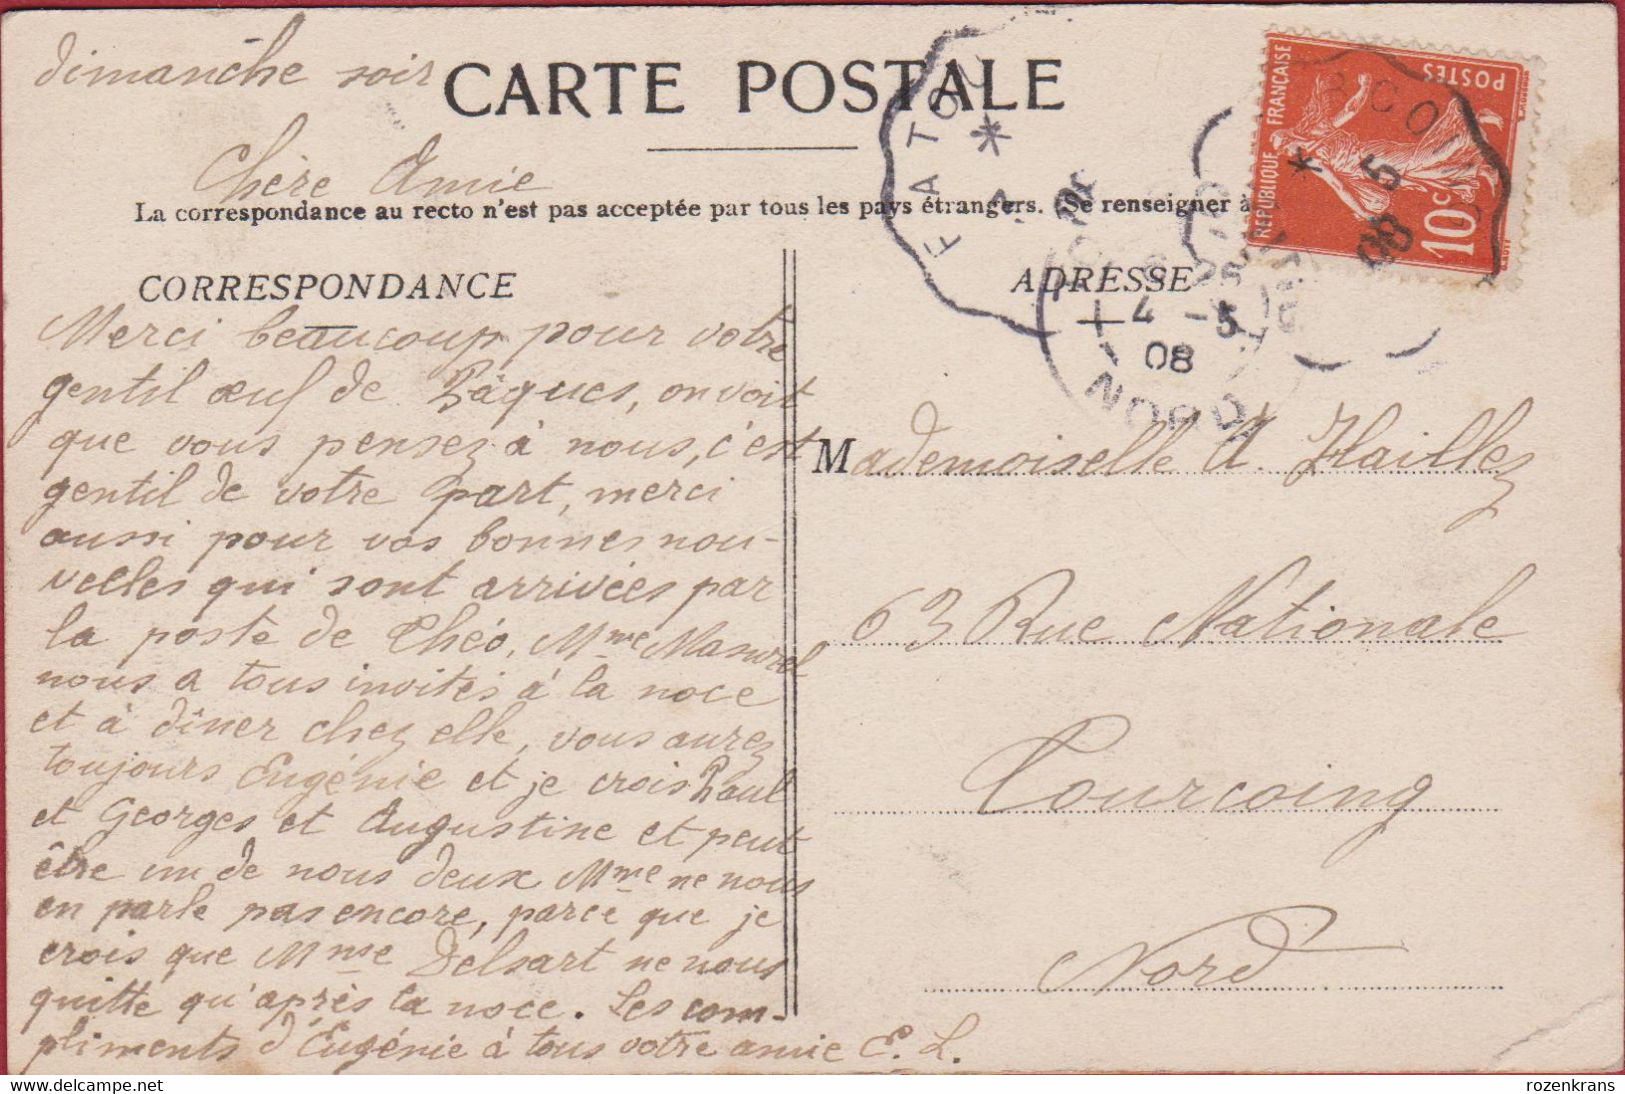 dimanche soir
CARTE POSTALE
Chère Amie
La correspondance au recto n'est pas acceptée par tous les pays étrangers. (Se renseigner à
CORRESPONDANCE
Merci beaucoup pour votre
gentil œuf de Pâques, on voit
que vous pensez à nous, c'est
gentil de votre part, merci
aussi pour vos bonnes nou-
velles qui sont arrivées par
la poste de Théo, Mme Masurel
nous a tous invités à la noce
et à dîner chez elle, vous aurez
toujours Eugénie et je crois Paul
et Georges et Augustine et peut
être un de nous deux Mme ne nous
en parle pas encore, parce que je
crois que Mme Delsart ne nous
quitte qu'après la noce. Les com-
pliments d'Eugénie à tous votre amie E. L.
ADRESSE
Mademoiselle A. Haillez
63 Rue Nationale
Tourcoing
Nord
REPUBLIQUE FRANÇAISE
POSTES
10c
5
08
4 -5
08
NORD
rozenkrans